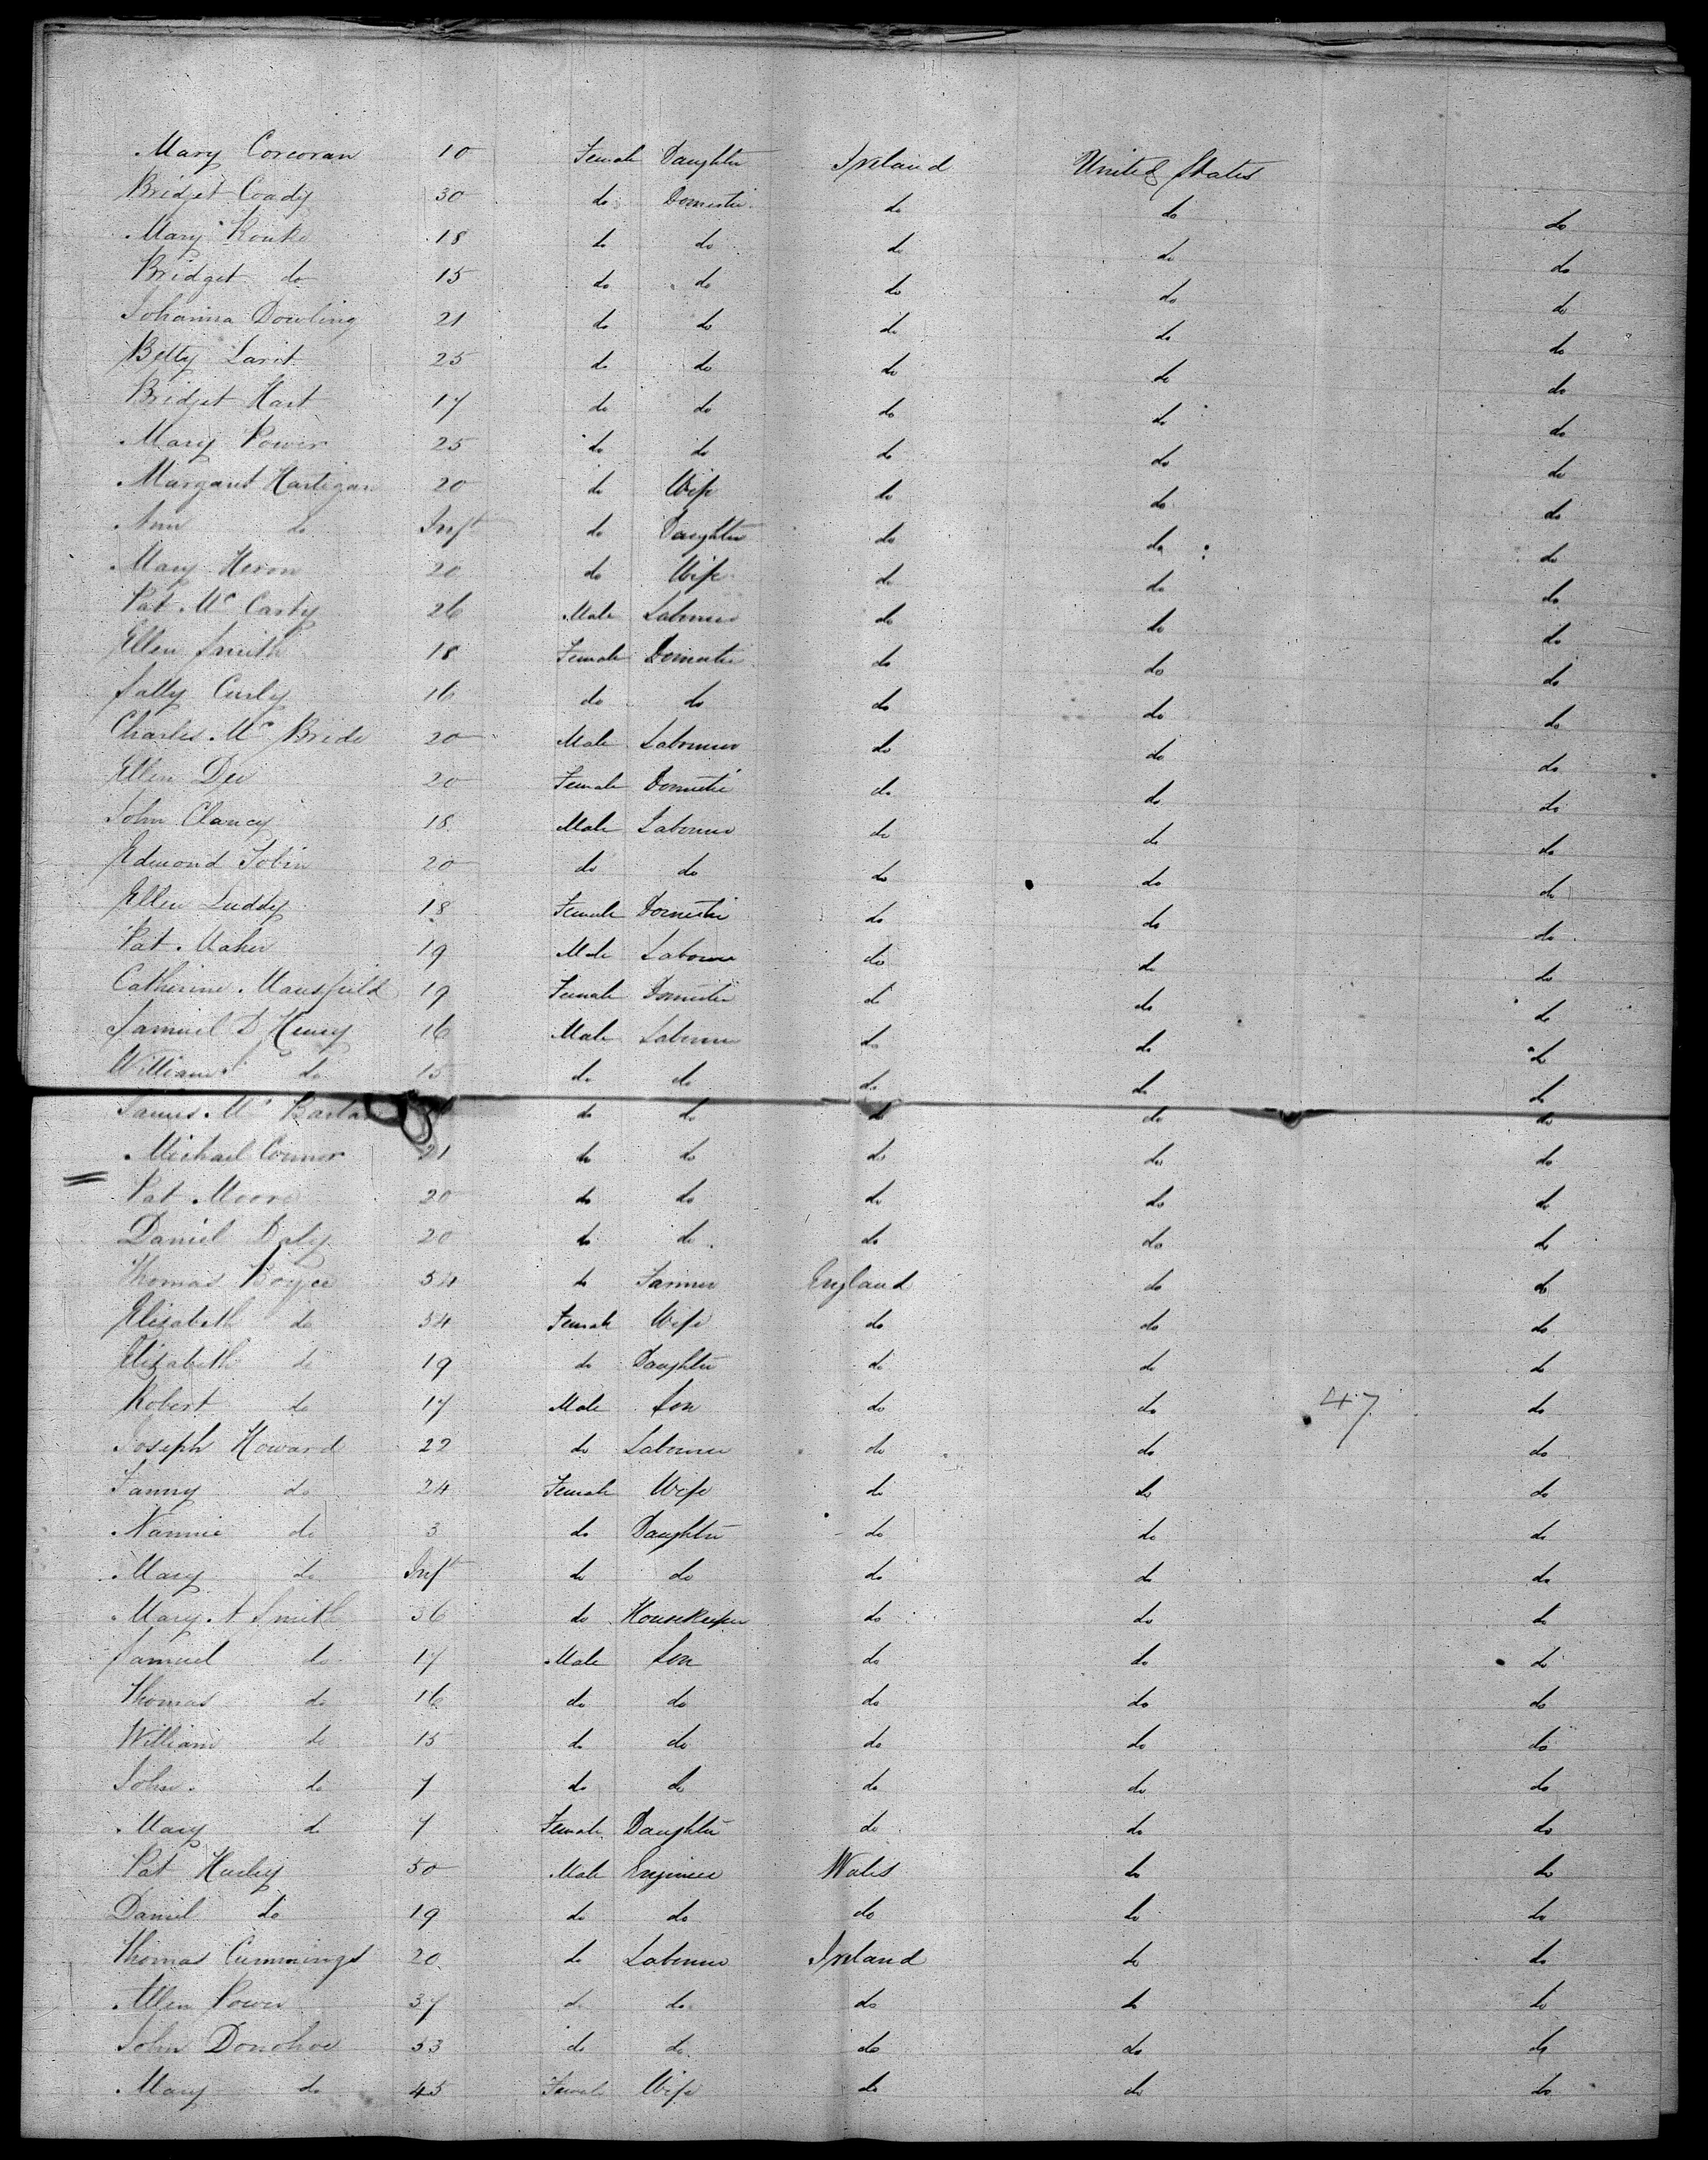 Mary Corcoran 10 Female Daughter Ireland United States
Bridget Coady 30 do Domestic do do do
Mary Rourke 18 do do do do do
Bridget do 15 do do do do do
Johanna Dowling 21 do do do do do
Betty 25 do do do do do
Bridget Hart 17 do do do do do
Mary Power 25 do do do do do
Margaret Hartigan 20 do Wife do do do
Ann do Inft do Daughter do do do
Mary Heron 20 do Wife do do do
Pat McCarty 26 Male Labourer do do do
Ellen Smith 18 Female Domestic do do do
Sally Curly 16 do do do do do
Charles McBride 20 Male Labourer do do do
Ellen Dee 20 Female Domestic do do do
John Clancy 18 Male Labourer do do do
Edmond Tobin 20 do do do do do
Ellen Luddy 18 Female Domestic do do do
Pat Maher 19 Male Labourer do do do
Catherine Mansfield 19 Female Domestic do do do
Samuel D Henry 16 Male Labourer do do do
William do 15 do do do do do
James Mc do do do do do
Michael Connor 21 do do do do do
Pat Moore 20 do do do do do
Daniel Daly 20 do do do do do
Thomas Boyce 54 do Farmer England do do
Elizabeth do 54 Female Wife do do do
Elizabeth do 19 do Daughter do do do
Robert do 17 Male Son do do 47 do
Joseph Howard 22 do Labourer do do do
Fanny do 24 Female Wife do do do
Nannie do 3 do Daughter do do do
Mary do Inft do do do do do
Mary A Smith 36 do Housekeeper do do do
Samuel do 17 Male Son do do do
Thomas do 16 do do do do do
William do 15 do do do do do
John do 7 do do do do do
Mary do 7 Female Daughter do do do
Pat Hurley 50 Male Engineer Wales do do
Daniel do 19 do do do do do
Thomas Cummings 20 do Labourer Ireland do do
Allen Power 37 do do do do do
John Donohoe 53 do do do do do
Mary do 45 Female Wife do do do